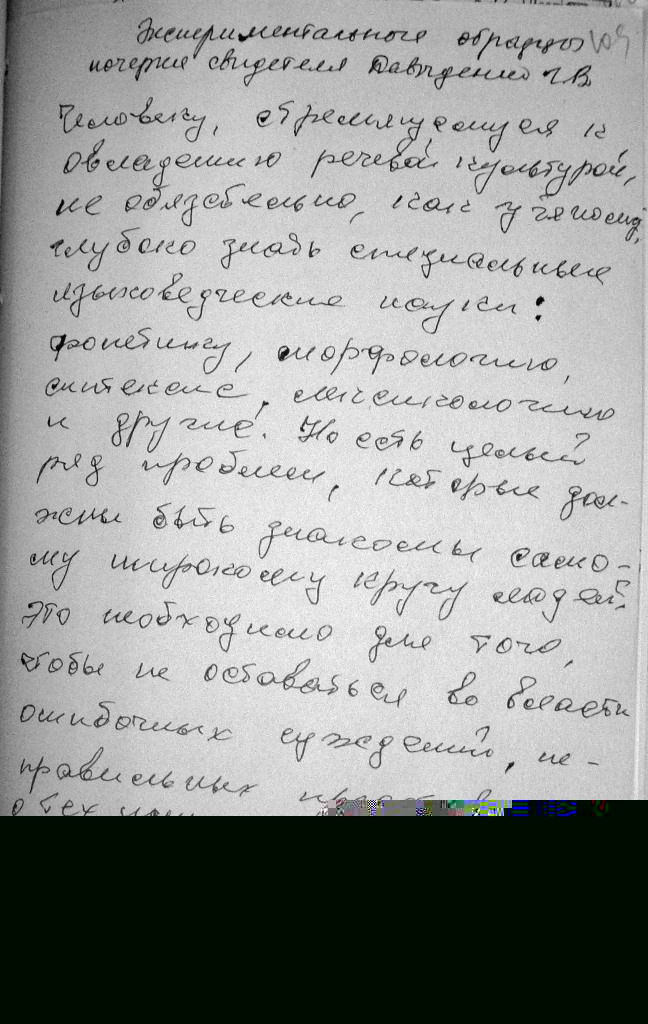 Экспериментальные образцы
почерка свидетеля Давыденко Г.В.
Человеку, стремящемуся к
овладению речевой культурой,
не обязательно, как учёному,
глубоко знать специальные
языковедческие науки:
фонетику, морфологию,
синтаксис, лексикологию
и другие. Но есть целый
ряд проблем, которые дол-
жны быть знакомы само-
му широкому кругу людей.
Это необходимо для того,
чтобы не оставаться во власти
ошибочных суждений, не-
правильных
о тех